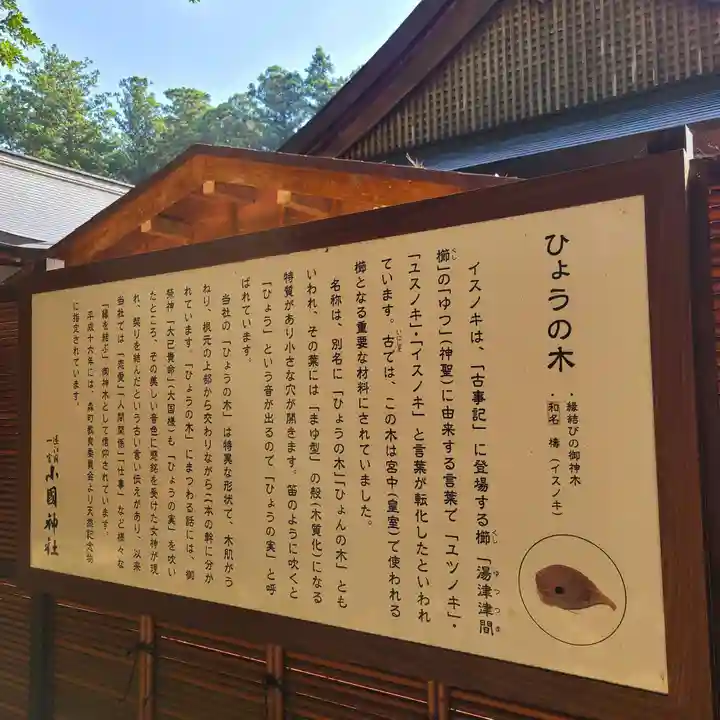 ひょうの木
・縁結びの御神木
・和名 柞（イスノキ）
イスノキは、「古事記」に登場する櫛「湯津津間
櫛」の「ゆつ」（神聖）に由来する言葉で「ユツノキ」・
「ユスノキ」・「イスノキ」と言葉が転化したといわれ
ています。古では、この木は宮中（皇室）で使われる
櫛となる重要な材料にされていました。
名称は、別名に「ひょうの木」「ひょんの木」とも
いわれ、その葉には「まゆ型」の殻（木質化）になる
特質があり小さな穴が開きます。笛のように吹くと
「ひょう」という音が出るので「ひょうの実」と呼
ばれています。
当社の「ひょうの木」は特異な形状で、木肌がう
ねり、根元の上部から交わりながら二本の幹に分か
れています。「ひょうの木」にまつわる話には、御
祭神「大己貴命」（大国様）も「ひょうの実」を吹い
たところ、その美しい音色に感銘を受けた女神が現
れ、契りを結んだという古い言い伝えがあり、以来
当社では「恋愛」「人間関係」「仕事」など様々な
「縁を結ぶ」御神木として信仰されています。
平成十六年には、森町教育委員会より天然記念物
に指定されています。
遠江國
一宮 小國神社